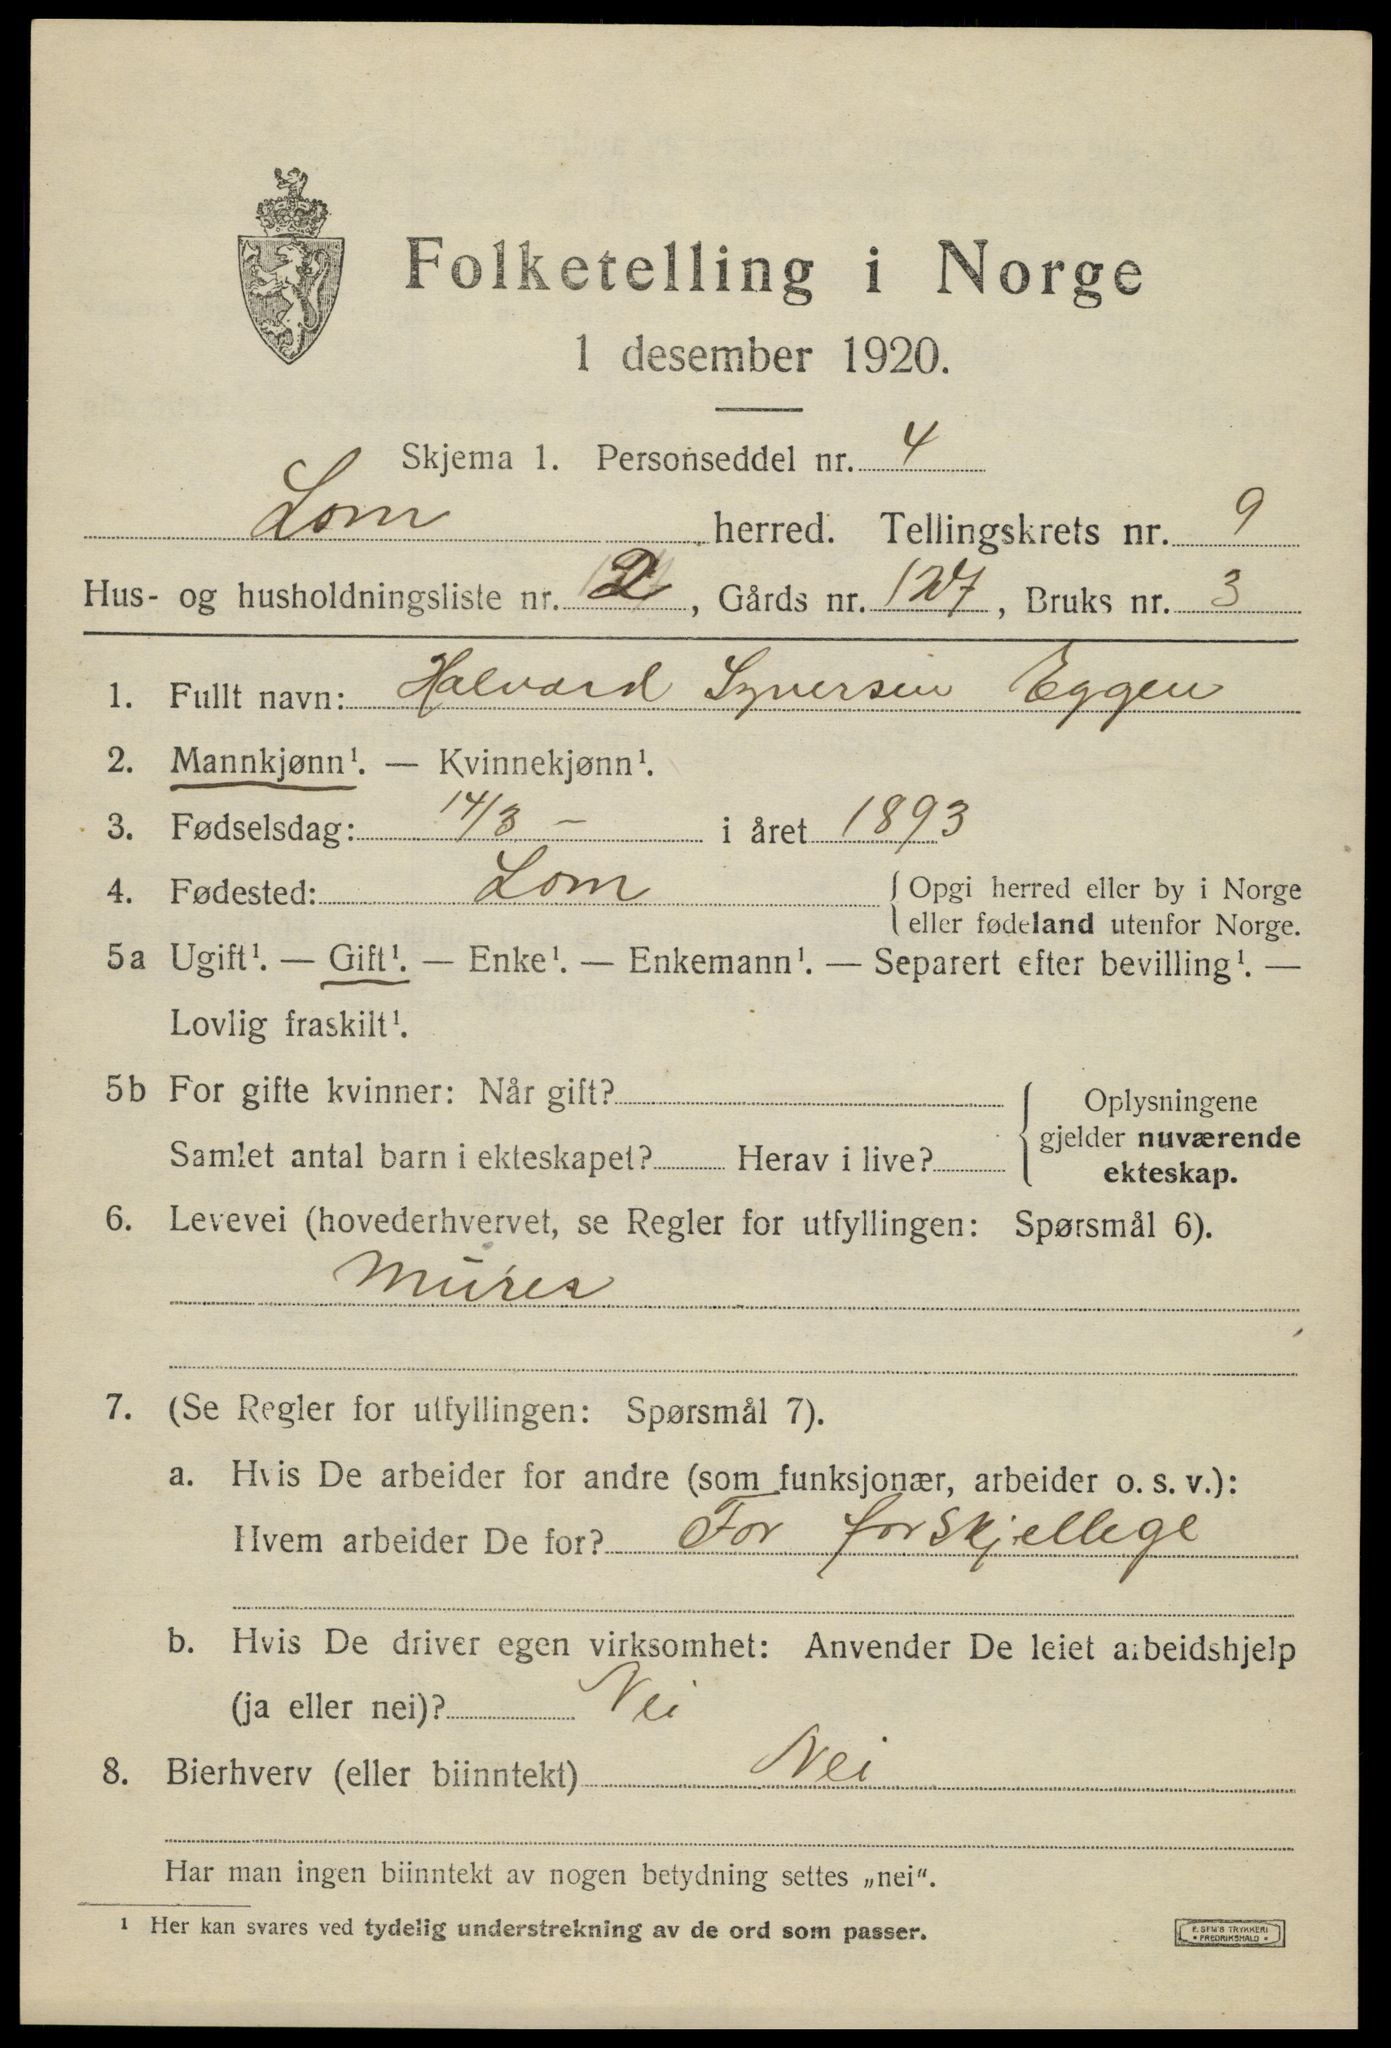 Folketelling i Norge
1 desember 1920.
Skjema 1. Personseddel nr. 4
Lom herred. Tellingskrets nr. 9
Hus- og husholdningsliste nr. 2, Gårds nr. 127, Bruks nr. 3
1. Fullt navn: Halvard Syversen Eggen
2. Mannkjønn¹. — Kvinnekjønn¹.
3. Fødselsdag: 14/3 – i året 1893
4. Fødested: Lom {Opgi herred eller by i Norge
eller fødeland utenfor Norge.
5a Ugift¹. — Gift¹. — Enke¹. — Enkemann¹. — Separert efter bevilling¹. —
Lovlig fraskilt¹.
5b For gifte kvinner: Når gift?
Samlet antal barn i ekteskapet? Herav i live?
{Oplysningene
gjelder nuværende
ekteskap.
6. Levevei (hovederhvervet, se Regler for utfyllingen: Spørsmål 6).
Murer
7. (Se Regler for utfyllingen: Spørsmål 7).
a. Hvis De arbeider for andre (som funksjonær, arbeider o. s. v.):
Hvem arbeider De for? For forskjellege
b. Hvis De driver egen virksomhet: Anvender De leiet arbeidshjelp
(ja eller nei)? Nei
8. Bierhverv (eller biinntekt) Nei
Har man ingen biinntekt av nogen betydning settes „nei“.
¹ Her kan svares ved tydelig understrekning av de ord som passer.
E. SEM'S TRYKKERI
• FREDRIKSHALD •